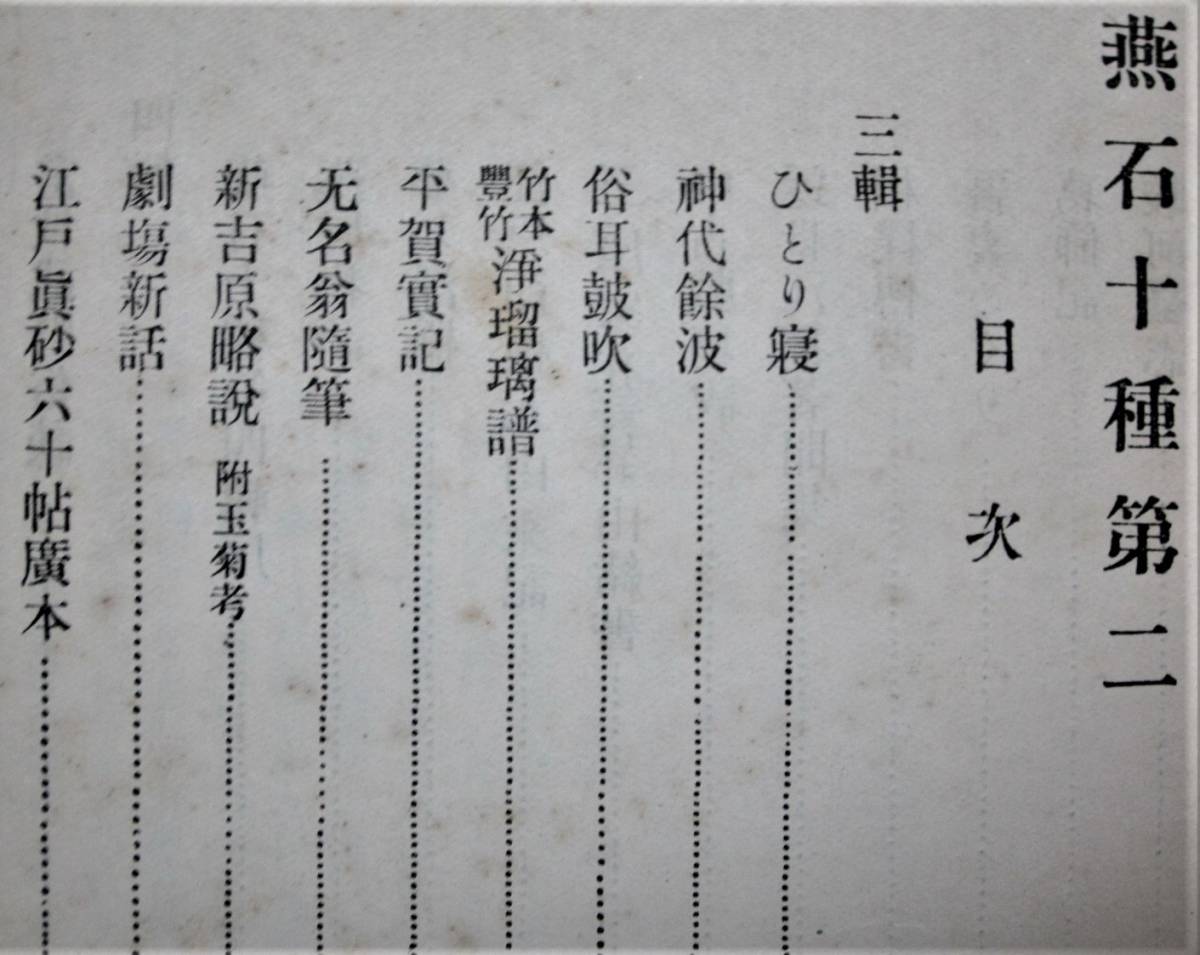 燕石十種第二
目次
三輯
ひとり寢
神代餘波
俗耳鼓吹
竹本豐竹淨瑠璃譜
平賀實記
无名翁隨筆
新吉原略說 附玉菊考
劇塲新話
江戶眞砂六十帖廣本